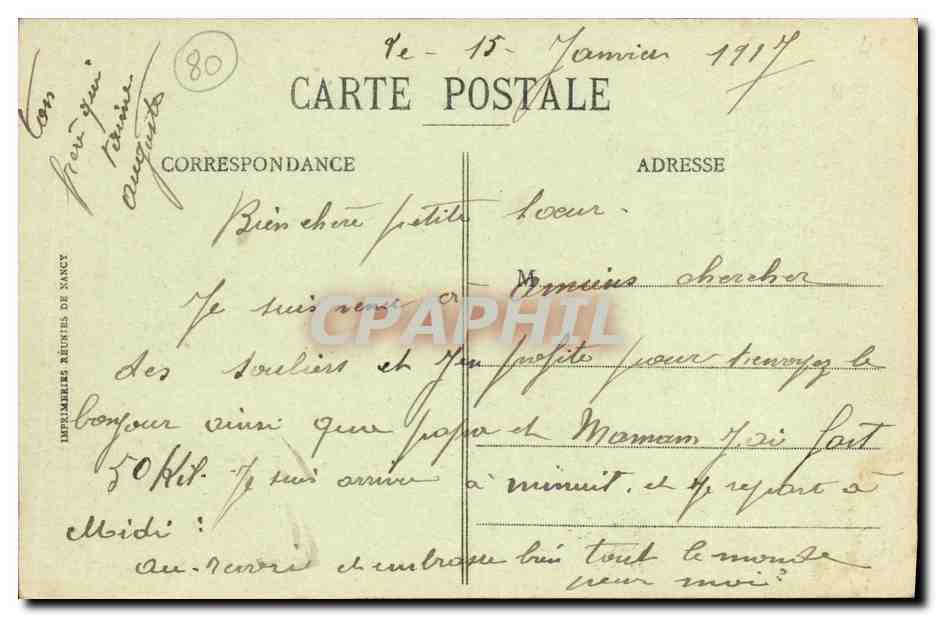 le - 15 - Janvier 1917
80
CARTE POSTALE
Ton
frère qui
t'aime
auguste
CORRESPONDANCE
ADRESSE
Bien chère petite Soeur -
M
Je suis venu a amiens chercher
des souliers et J'en profite pour t'envoyez le
bonjour ainsi que papa et Maman J'ai fait
50 Kil. Je suis arrivé à minuit. et Je repart à
Midi :
au-revoir et embrasse bien tout le monde
pour moi
IMPRIMERIES RÉUNIES DE NANCY
CPAPHIL